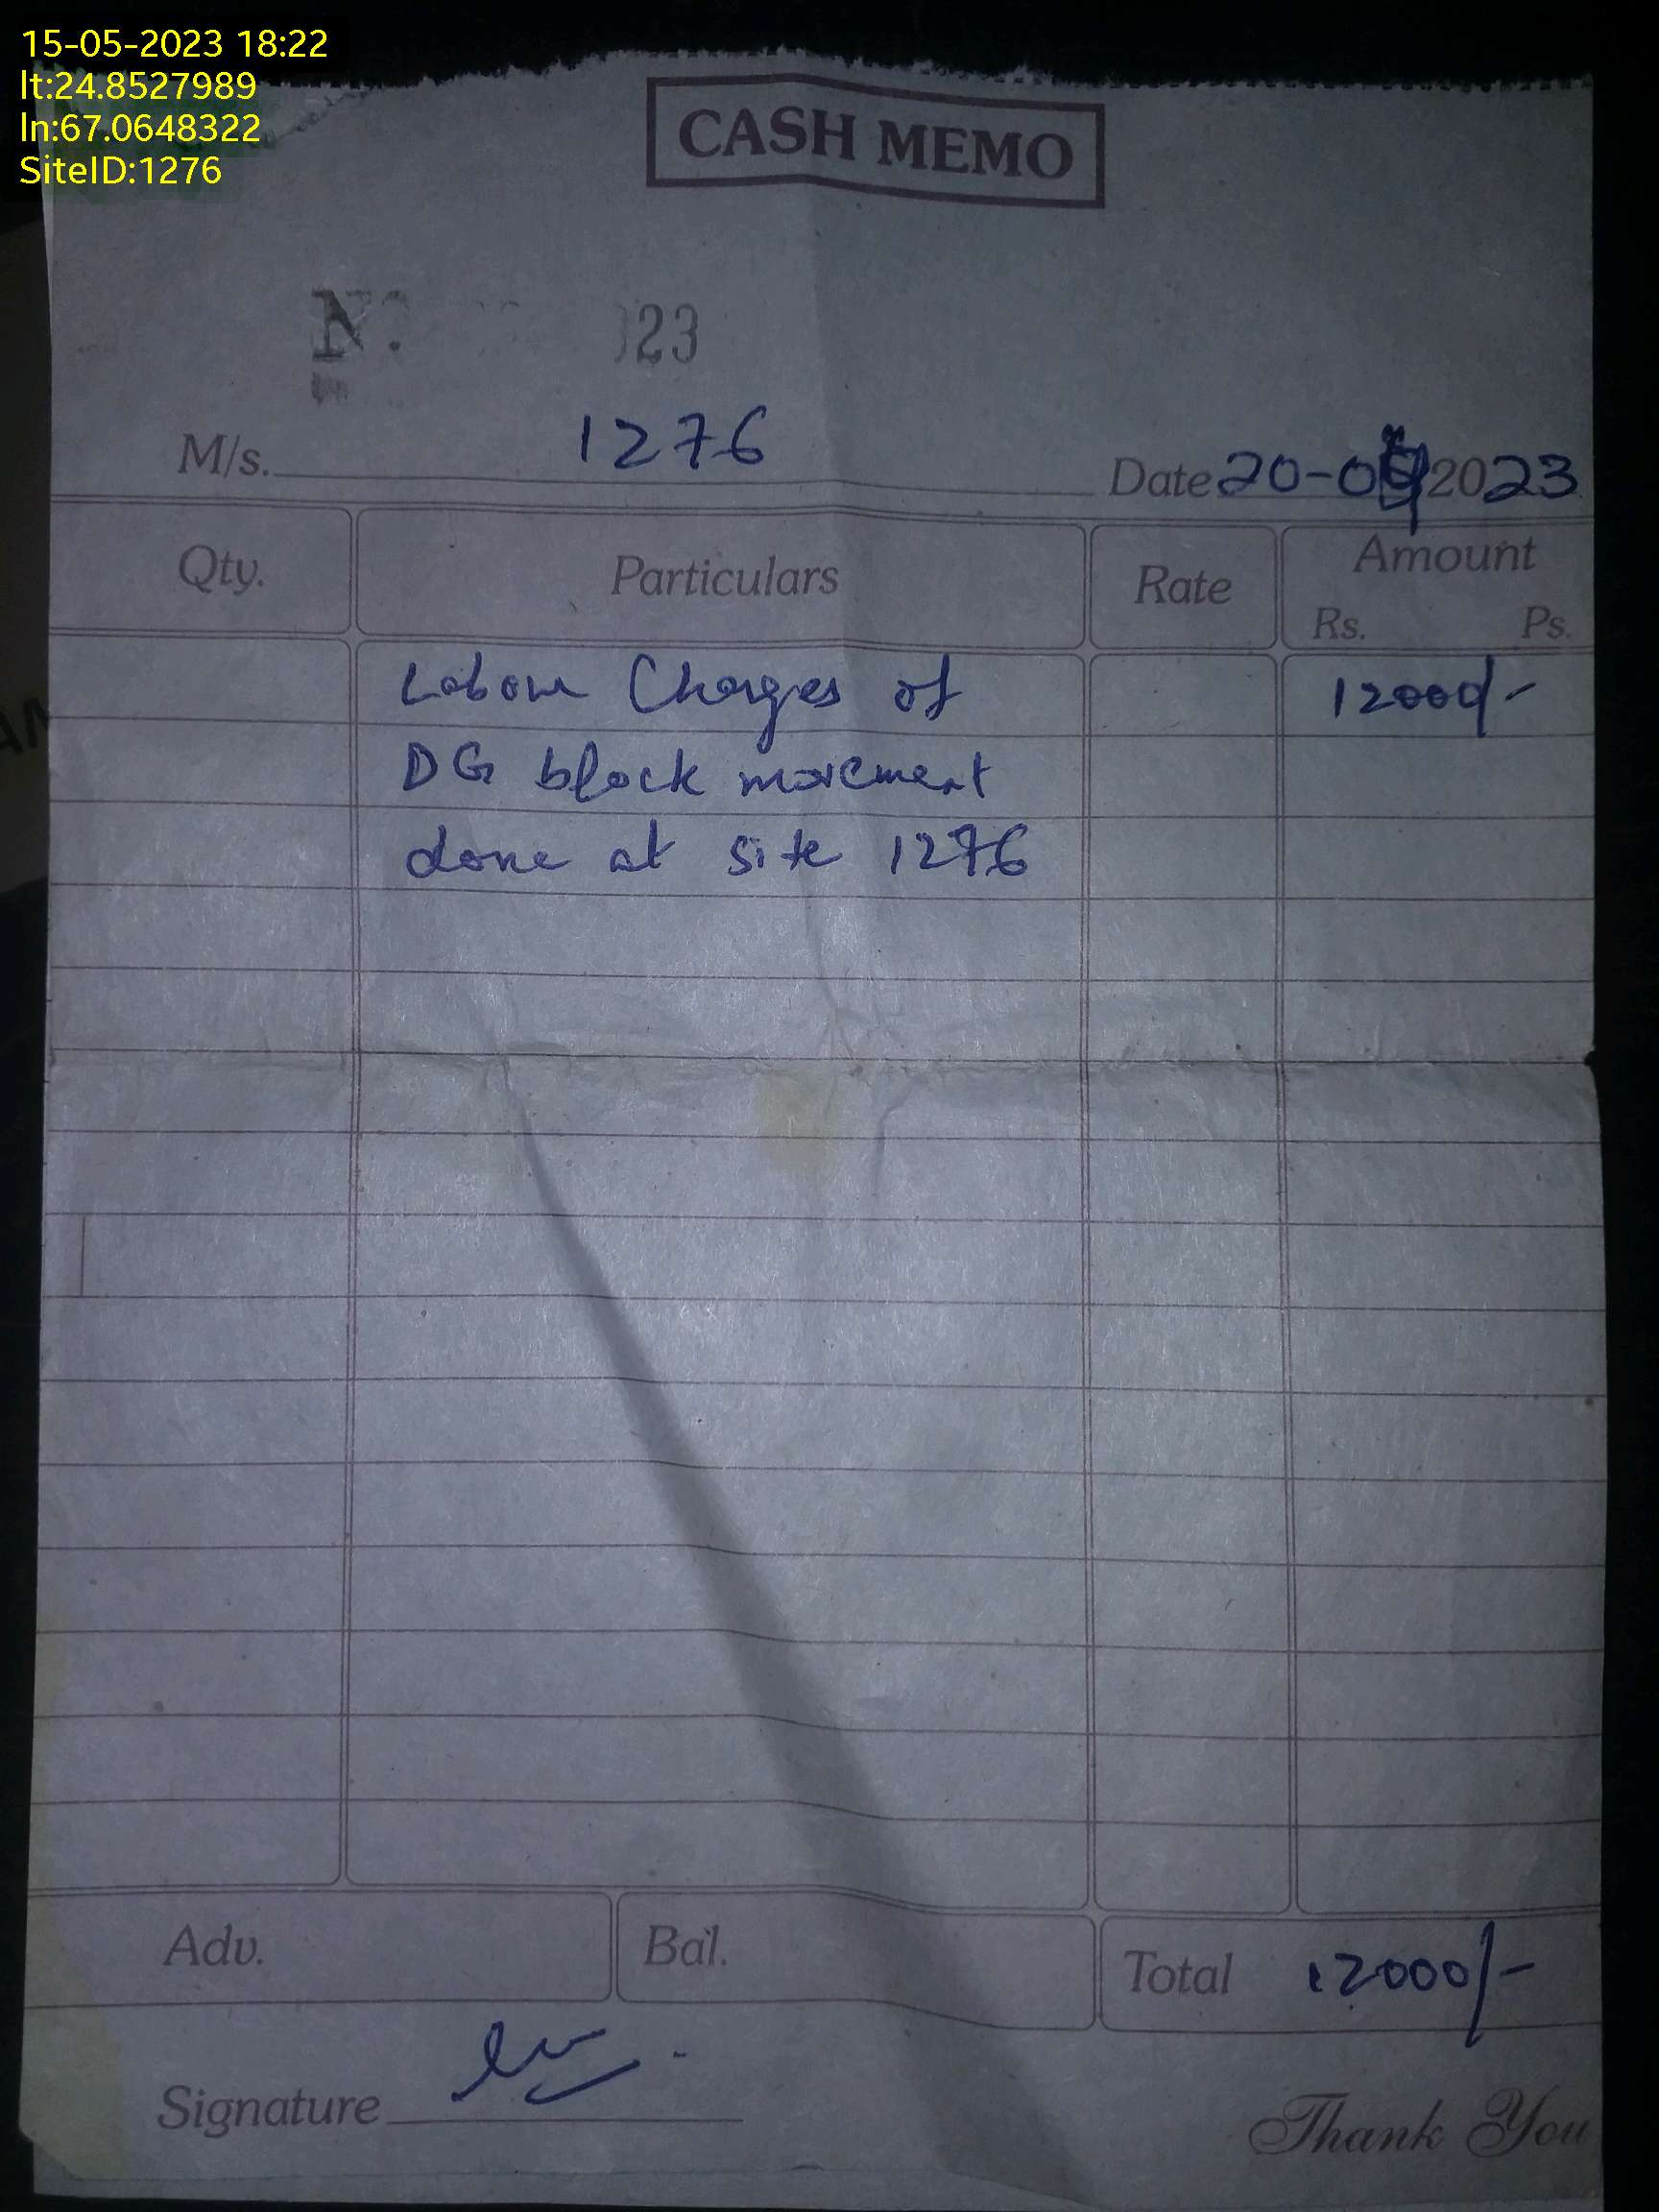 15-05-2023 18:22
lt:24.8527989
ln:67.0648322
SiteID:1276
CASH MEMO
No. 23
M/s. 1276
Date 20-0 2023
Qty. Particulars Rate Amount
Rs. Ps.
Labour Charges of 12000/-
DG block movement
done at site 1276
Adv. Bal. Total 12000/-
Signature
Thank You